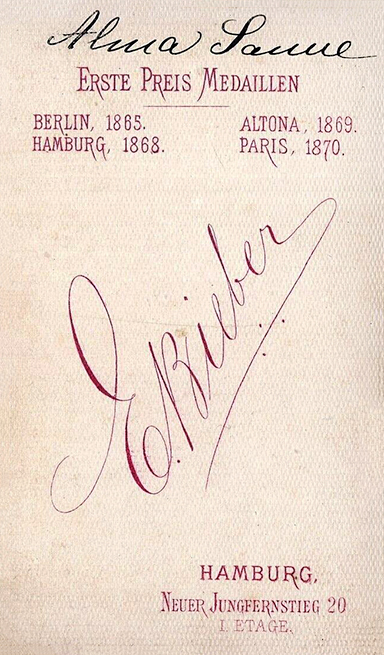 Alma Sanne
ERSTE PREIS MEDAILLEN
BERLIN, 1865. ALTONA, 1869.
HAMBURG, 1868. PARIS, 1870.
E. Bieber
HAMBURG,
NEUER JUNGFERNSTIEG 20
I. ETAGE.